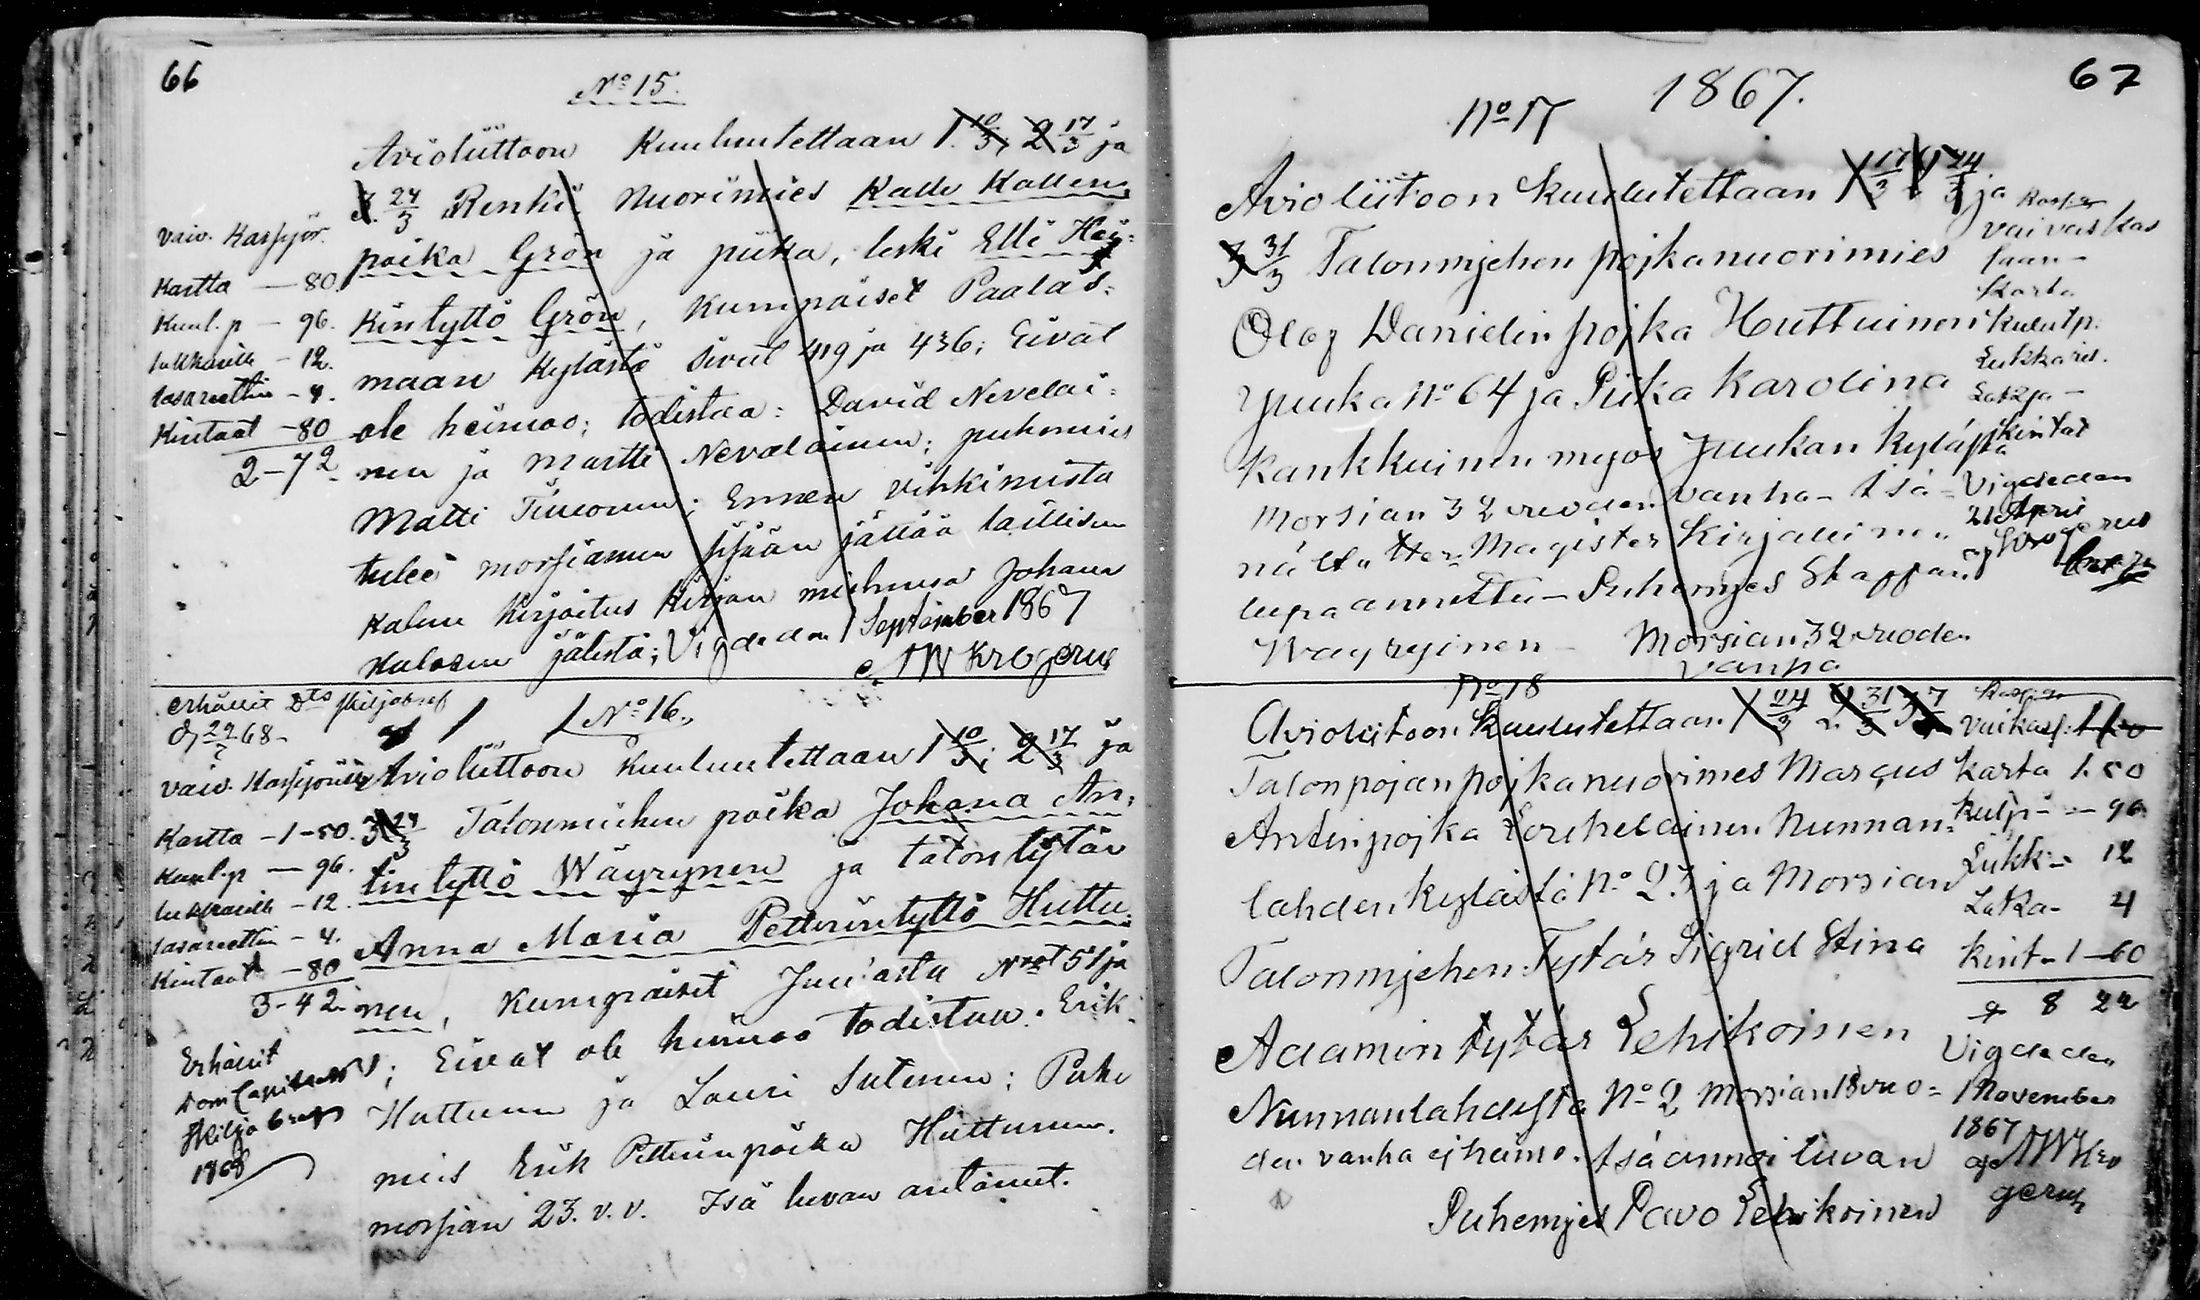 66
No 15.
Avioliittoon Kuulutettaan 1. 10/3, 2 17/3 ja
3. 24/3 Renki Nuorimies Kalle Kallen
poika Grön ja piika, leski Elli Hei:
kintyttö Grön, Kumpaiset Paalas:
maan Kylästä sivul 419 ja 436; Eivät
ole heimoo; todistaa: David Nevelai:
nen ja Martti Nevalainen; puhemies
Matti Timonen; Ennen vihkimistä
tulee morsiamen sisään jättää laillisen
kalun kirjoitus kirjan miehensä Johana
Kalosen jälestä; Vigde den 1 September 1867
NW Krogerus
vaiv. Kassjör.
Kartta — 80.
Kuul. p — 96.
lukkarille — 12.
lasareettiin — 4.
Kintaat — 80
2 — 72.
erhållit Dts skiljobref
d 29/2 68 —
No 16.
Avioliittoon Kuuluutettaan 1 10/3; 2 17/3 ja
3 24/3 Talonmiehen poika Johana An:
tintyttö Wäyrynen ja talon tytär
Anna Maria Petterintyttö Huttu:
nen, Kumpaiset Juu'asta Nrot 51 ja
; Eivat ole heimoo todistaa. Erik
Huttunen ja Lauri Sutinen; Puhe
mies Erik Petterinpoika Huttunen.
morsian 23. v. v. Isä luvan antanut.
Kartta — 1 — 50.
Kuul. p — 96.
lukkarille — 12
lasareettiin — 4.
Kintaat — 80
3 — 42.
Erhållit
Dom Capitlets
Skiljobref
1868
1867.
67
No 17
Avioliitoon kuulutettaan 1 17/3 2 24/3 ja
3 31/3 Talonmjehen pojka nuorimies
Olof Danielin pojka Huttuinen
Yuuka No 64 ja Piika Karolina
Kankkuinen myös Juukan kylästä
Morsian 32 vuoden vanha — Isä =
Magister Kirjallinen
lupa annettu — Puhemjes Staffan
Wäyryinen — Morsian 32 vuoden
vanha
vaivaskas
saan —
Karta
Kulutp.
Lukkaril.
kintat
Vigde den
21 April
Krogerus
No 18
Avioliitoon kuulutettaan 1 24/3 2 31/3 3 7/4
Talonpojan pojka nuorimes Marcus
Antin pojka Lorihelainen Nunnan:
lahden kylästä No 23 ja Morsian
Talonmjehen Tytär Sigrid Stina
Adamin tytär Lehikoinen
Nunnanlahdesta No 2 Morsian 18 vuo =
den vanha ej heimo. Isä annoi luvan
Puhemjes Pavo Lehikoinen
Karta 1. 50
Kulp — 96
Lukk — 12
Laka — 4
Kint — 1 — 60
8 22
Vigde den
1 November
1867
af NW Kro
gerus